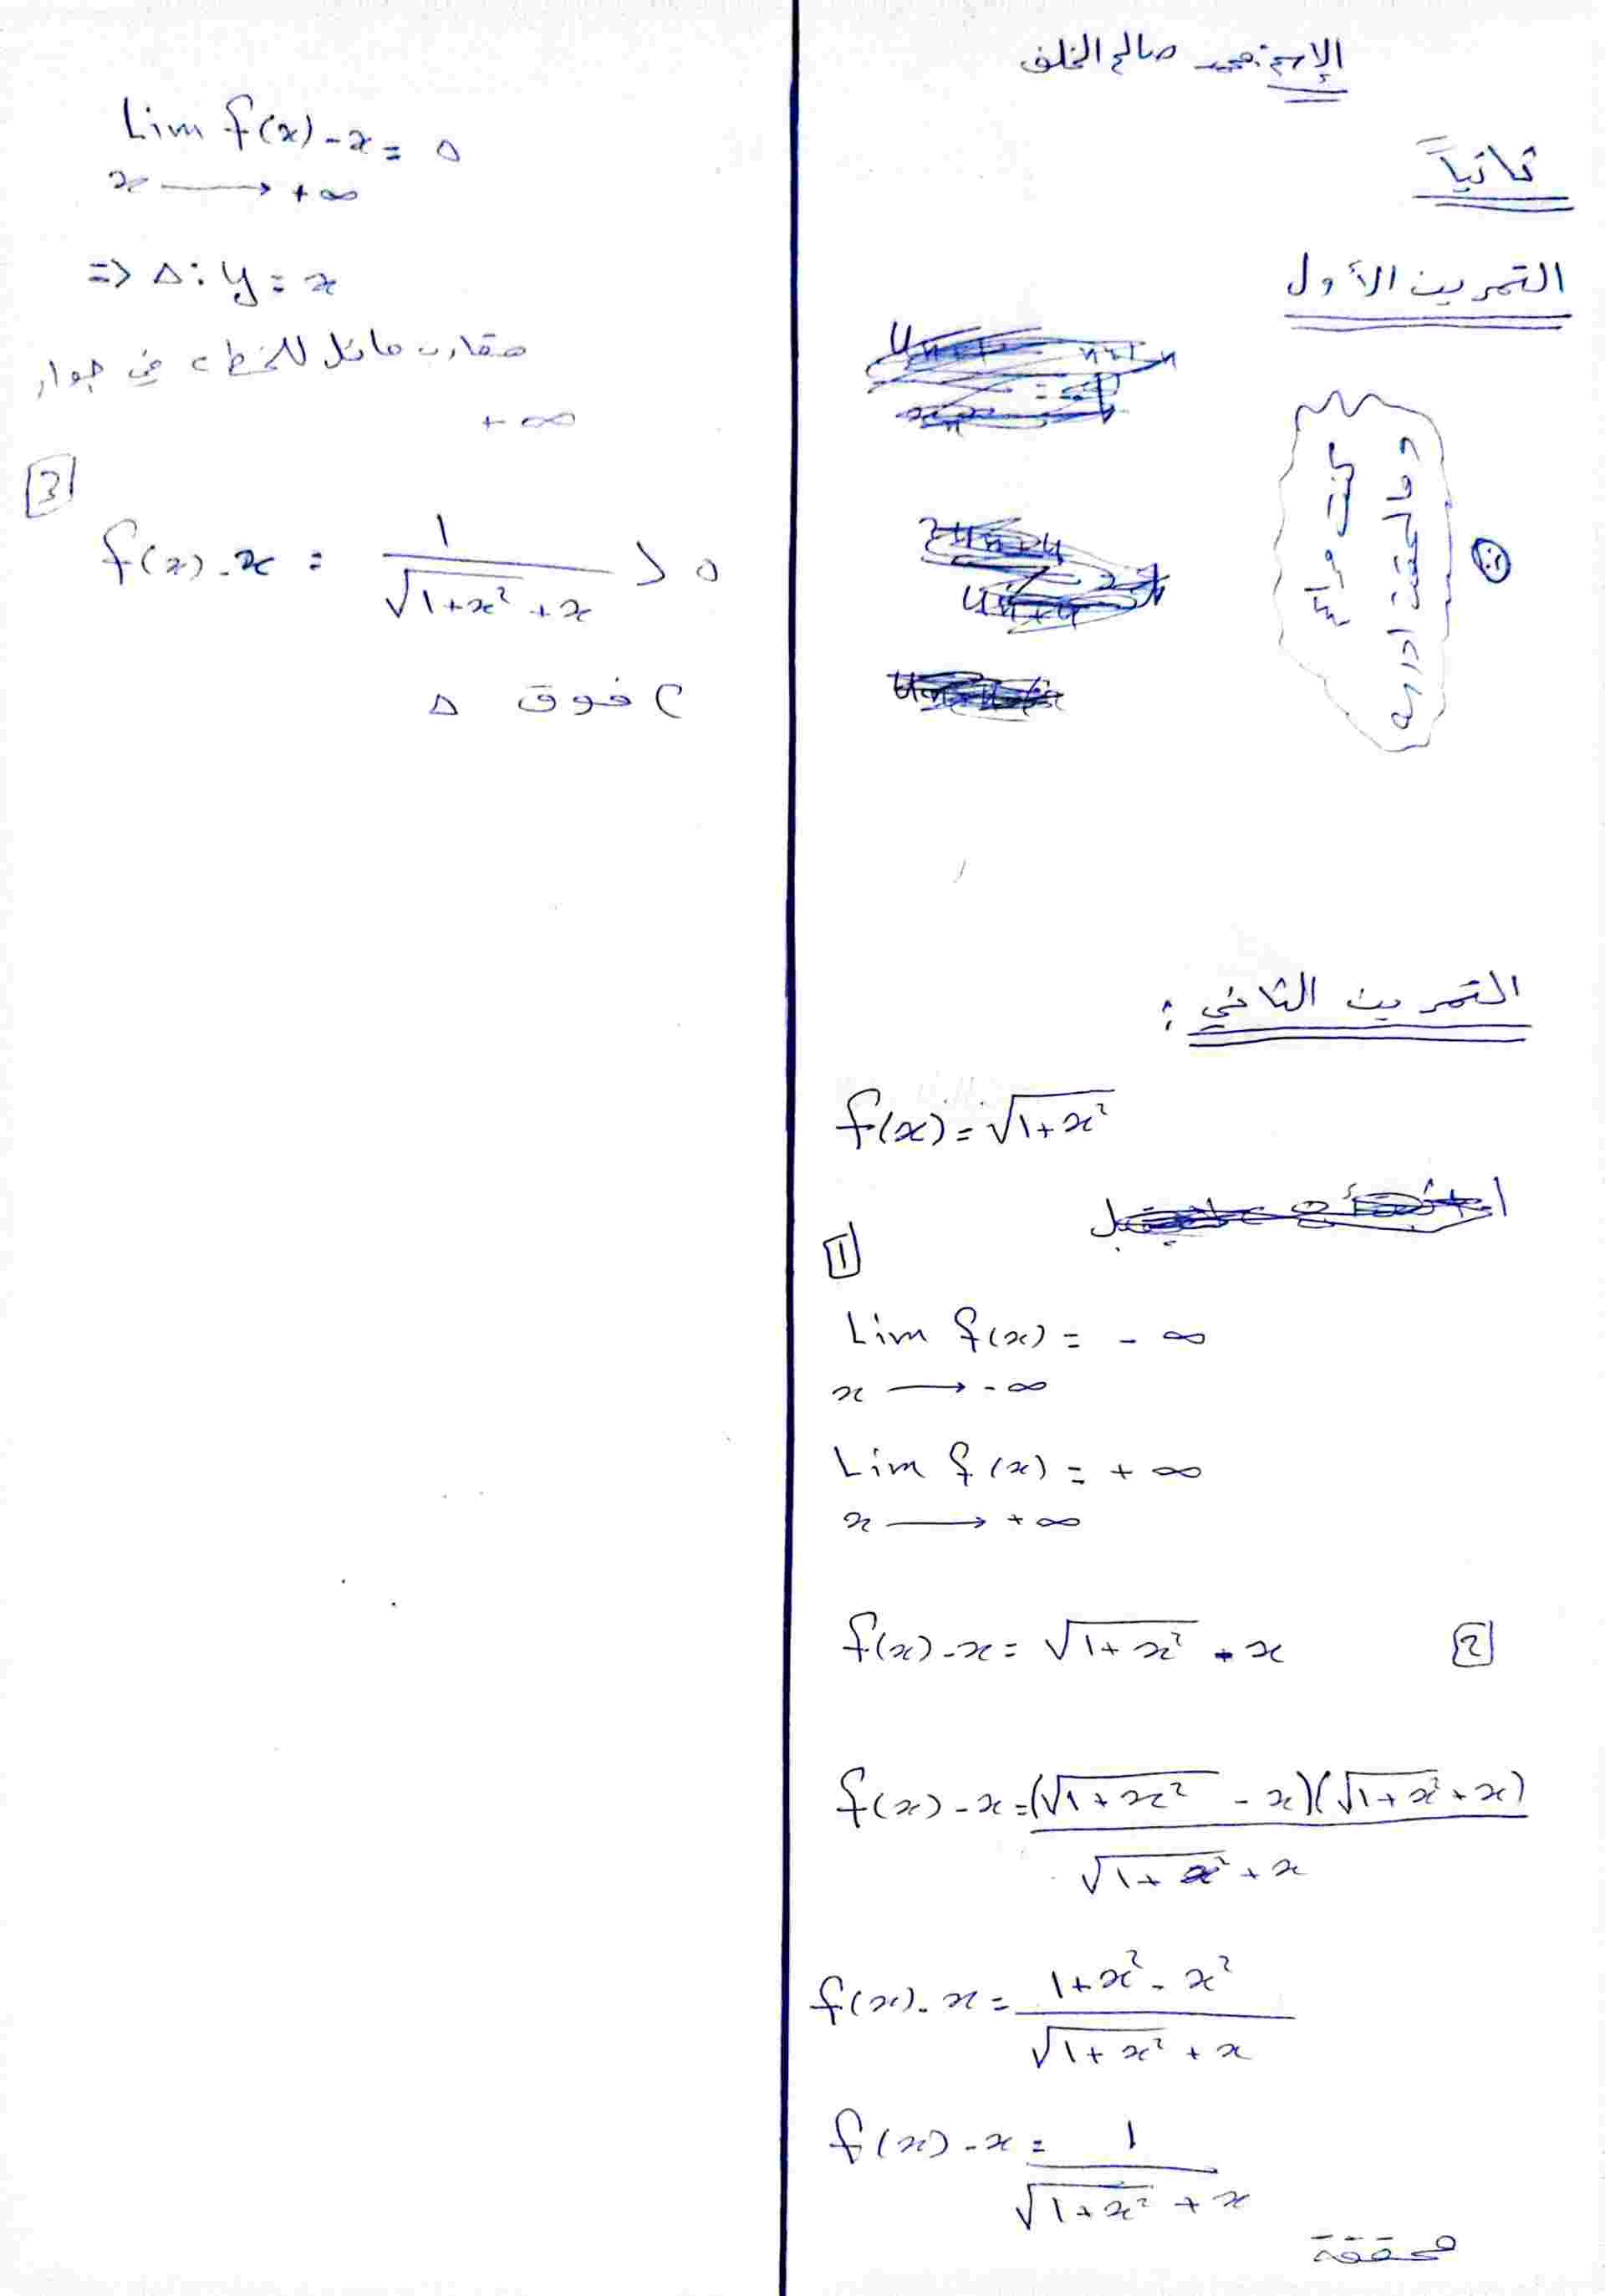 الإسم: محمد صالح الخلف
ثانياً
التمرين الأول
كنت مراجع
وما لحقت ادرسه
التمرين الثاني :
f(x) = √(1+x²)
1
Lim f(x) = - ∞
x → - ∞
Lim f(x) = + ∞
x → + ∞
2
f(x) - x = √(1+x²) - x
f(x) - x = (√(1+x²) - x)(√(1+x²) + x) / (√(1+x²) + x)
f(x) - x = (1+x² - x²) / (√(1+x²) + x)
f(x) - x = 1 / (√(1+x²) + x)
محققة
Lim f(x) - x = 0
x → + ∞
=> Δ: y = x
مقارب مائل للخط C في جوار
+ ∞
3
f(x) - x = 1 / (√(1+x²) + x) > 0
C فوق Δ